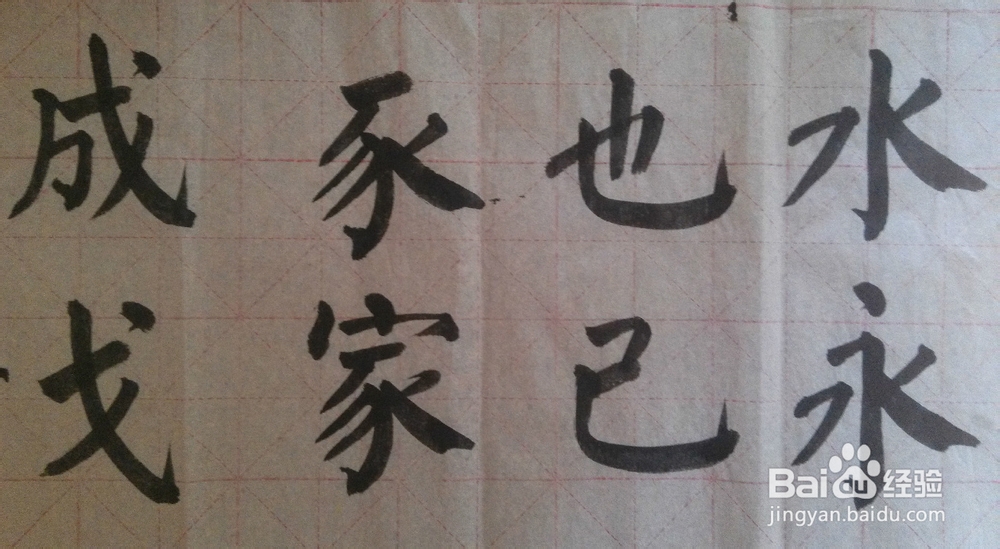 水永
也己
豕家
成戈
Baidu 经验
jingyan.baidu.com